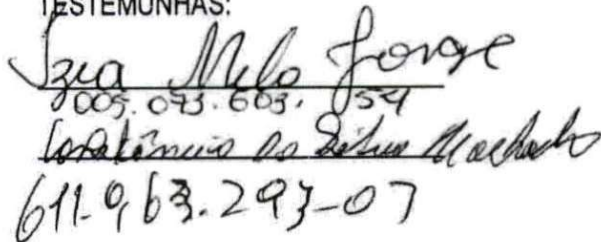 TESTEMUNHAS:
Izea Melo Jorge
005.073.603. 54
da Silva Machado
611.963.293-07